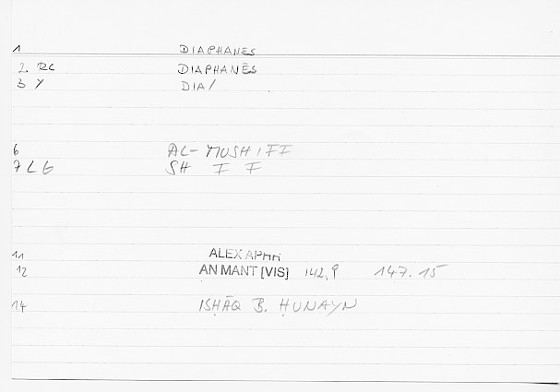 1 DIAPHANES
2 RC DIAPHANĒS
3 Y DIA/
6 AL-MUSHIFF
7 LE SH F F
11 ALEX APHR
12 AN MANT [VIS] 142,9 147.15
14 ISḤĀQ B. ḤUNAYN